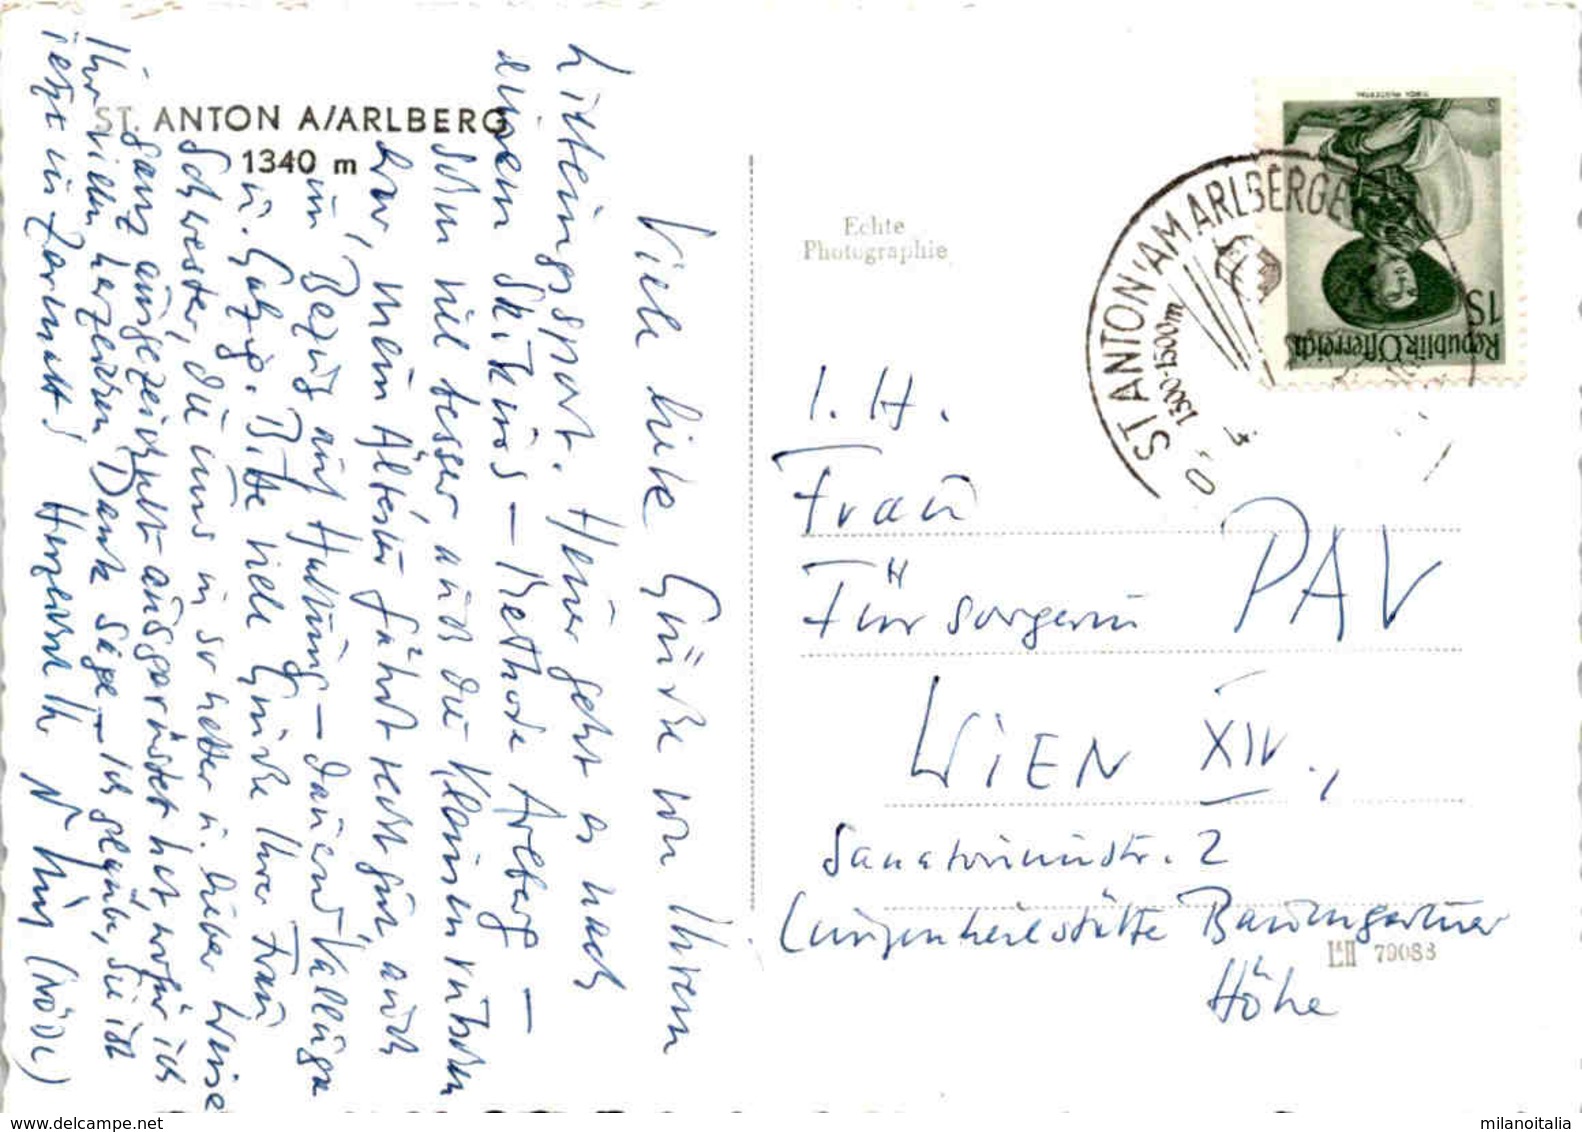 ST. ANTON A/ARLBERG
1340 m
Viele liebe Grüße von Ihrem
Lieblingssport. Heuer geht es nach
einem Skikurs – Methode Arlberg –
schon viel besser, auch die Kleinen rutschen
brav, mein Ältester fährt recht gut, auch
im Bezug auf Haltung – dauernd Valluga
u. Galzig. Bitte viele Grüße Ihrer Frau
Schwester, die uns in so netter u. lieber Weise
ganz ausgezeichnet ausgerüstet hat, wofür ich
Ihr vielen herzlichen Dank sage, – ich glaube, Sie ist
jetzt in Zermatt! Herzlichst Ihr
Echte
Photographie
Republik Österreich
1S
ST ANTON AM ARLBERG
1300-1500m
I. H.
Frau
Fürsorgerin PAV
WIEN XIV.,
Sanatoriumstr. 2
Lungenheilstätte Baumgartner
Höhe
79088
www.delcampe.net
milanoitalia